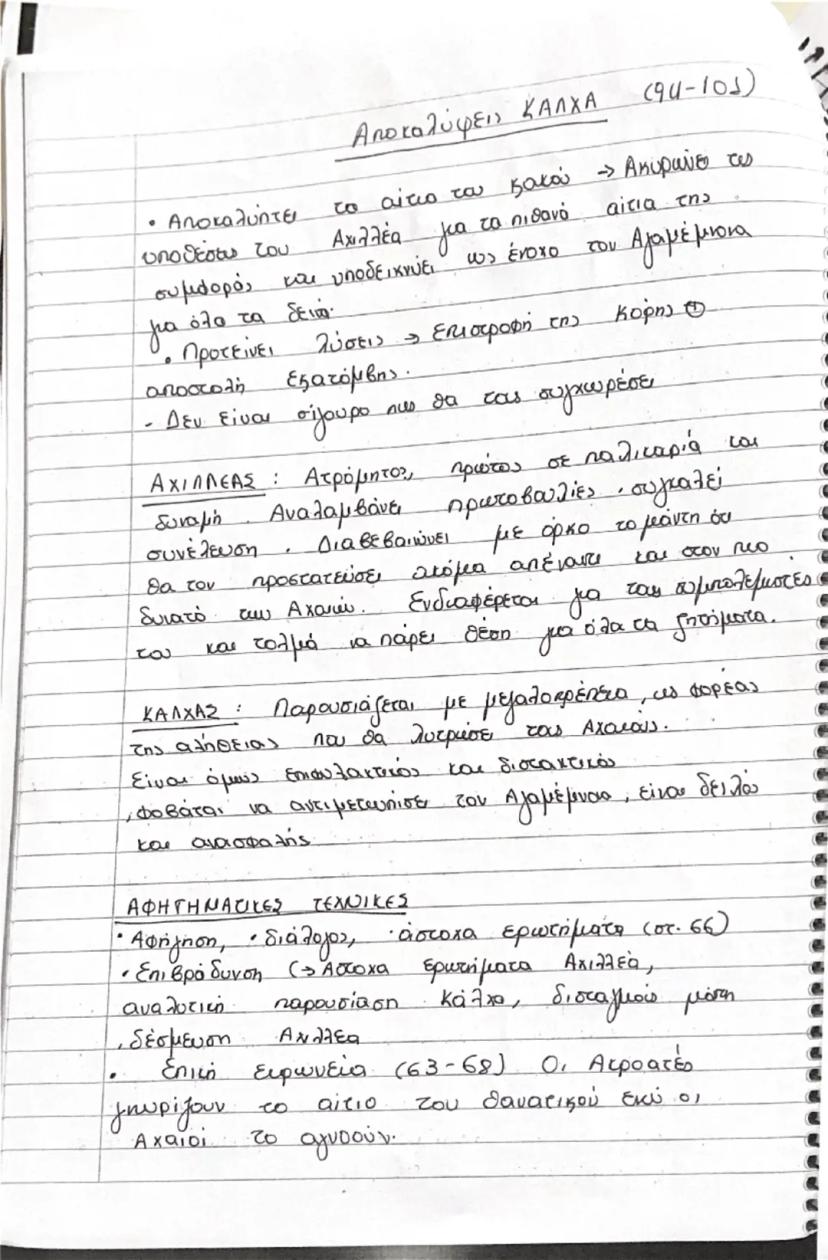 Αποκαλύψεις ΚΑΛΧΑ (94-101)
• Αποκαλύπτει το αίτιο του κακού → Ακυρώνει τις
υποθέσεις του Αχιλλέα για τα πιθανά αίτια της
συμφοράς και υποδεικνύει ως ένοχο τον Αγαμέμνονα
για όλα τα δεινά.
• Προτείνει λύσεις → επιστροφή της κόρης ⊕
αποστολή εξατόμβης.
- Δεν είναι σίγουρο πως θα τους συγχωρέσει
ΑΧΙΛΛΕΑΣ : Ατρόμητος, πρώτος σε παλικαριά και
δυναμή. Αναλαμβάνει πρωτοβουλίες, συγκαλεί
συνέλευση. Διαβεβαιώνει με όρκο το μάντη ότι
θα τον προστατεύσει ακόμα απέναντι και στον πιο
δυνατό των Αχαιών. Ενδιαφέρεται για τους συμπολεμιστές
του και τολμά να πάρει θέση για όλα τα ζητήματα.
ΚΑΛΧΑΣ : Παρουσιάζεται με μεγαλοπρέπεια, ως φορέας
της αλήθειας που θα λυτρώσει τους Αχαιούς.
Είναι όμως επιφυλακτικός και διστακτικός
, φοβάται να αντιμετωπίσει τον Αγαμέμνονα, είναι δειλός
και ανασφαλής
ΑΦΗΓΗΜΑΤΙΚΕΣ ΤΕΧΝΙΚΕΣ
• Αφήγηση, • διάλογος, • άστοχα ερωτήματα (στ. 66)
• Επιβράδυνση (→ Αστοχα ερωτήματα Αχιλλέα,
αναλυτική παρουσίαση Κάλχα, δισταγμοί μάντη
, δέσμευση Αχιλλέα
• Επική ειρωνεία (63-68) Οι Ακροατές
γνωρίζουν το αίτιο του θανατικού ενώ οι
Αχαιοί το αγνοούν.